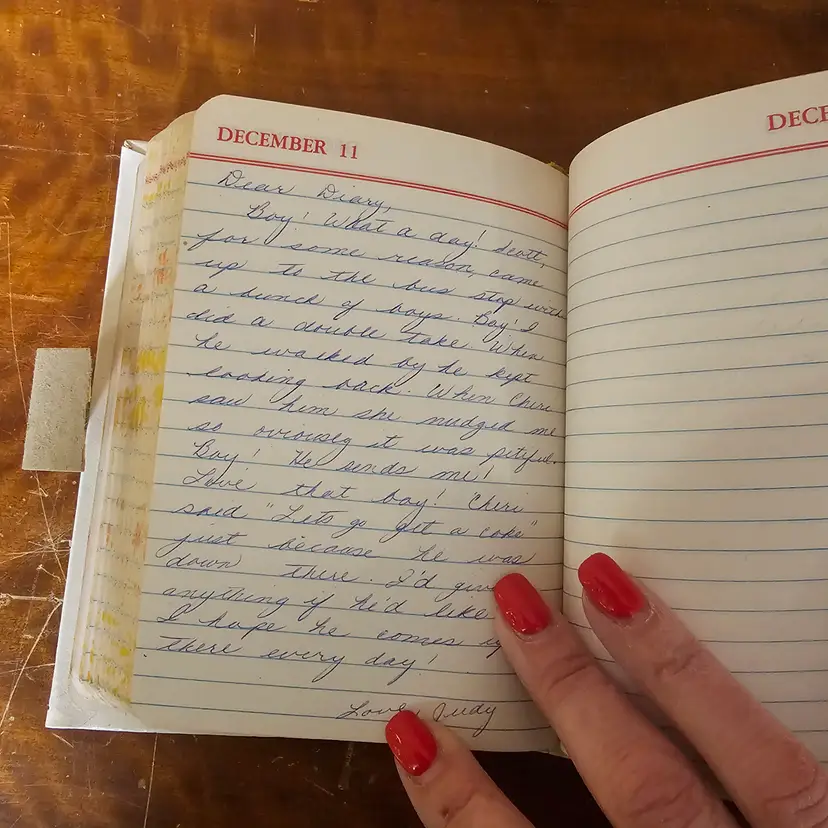 DECEMBER 11
Dear Diary,
Boy! What a day! Scott,
for some reason, came
up to the bus stop with
a bunch of boys. Boy! I
did a double take. When
he walked by he kept
looking back. When Cheri
saw him she nudged me
so oviousey it was pityful.
Boy! He sends me!
Love that boy! Cheri
said "Lets go get a coke"
just because he was
down there. I'd give
anything if he'd like
I hope he comes up
there every day!
Love, Judy
DECE